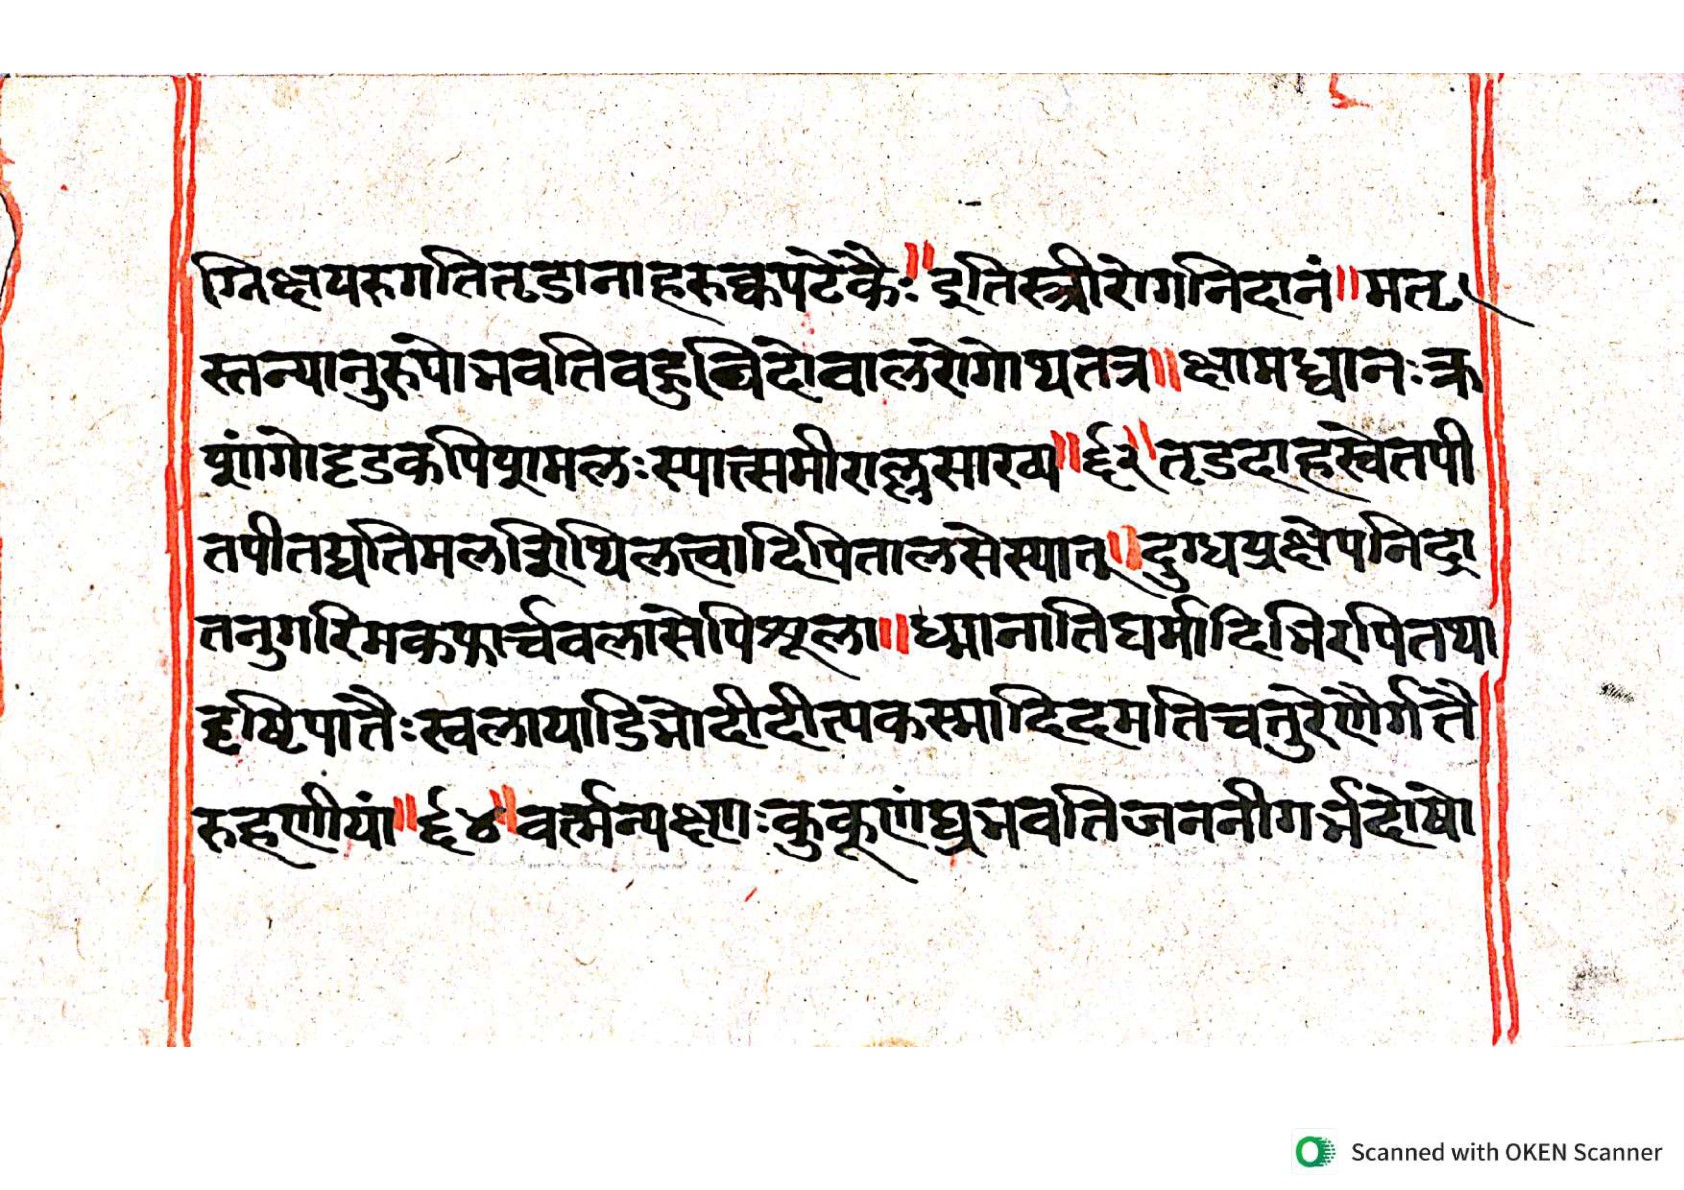 ग्निक्षयरुगतितृडानाहरुक्कपटेकैः॥ इतिस्त्रीरोगनिदानं॥ मतृ
स्तन्यानुरूपोभवतिवहुविदोवालरोगोथतत्र॥ क्षामध्वानःक्र
शांगोदृडकपिशमलःस्यात्समीरात्नुसारव्य॥ ६३॥ तृडदाहस्वेतपी
तपीतद्यतिमलशिथिलत्वादिपितालसेस्यात्॥ दुग्धप्रक्षेपनिद्रा
तनुगरिमकफार्चवलासेपिशूला॥ ध्मानातिघर्मादिभिरपितथा
दृष्टिपातैःस्वलायाडिंभोदीदीत्यकस्मादिदमतिचतुरेणैर्गतै
रुहणीयां॥ ६४॥ वर्त्मन्यक्ष्णःकुकूणंप्रभवतिजननीगर्भदोषो
Scanned with OKEN Scanner